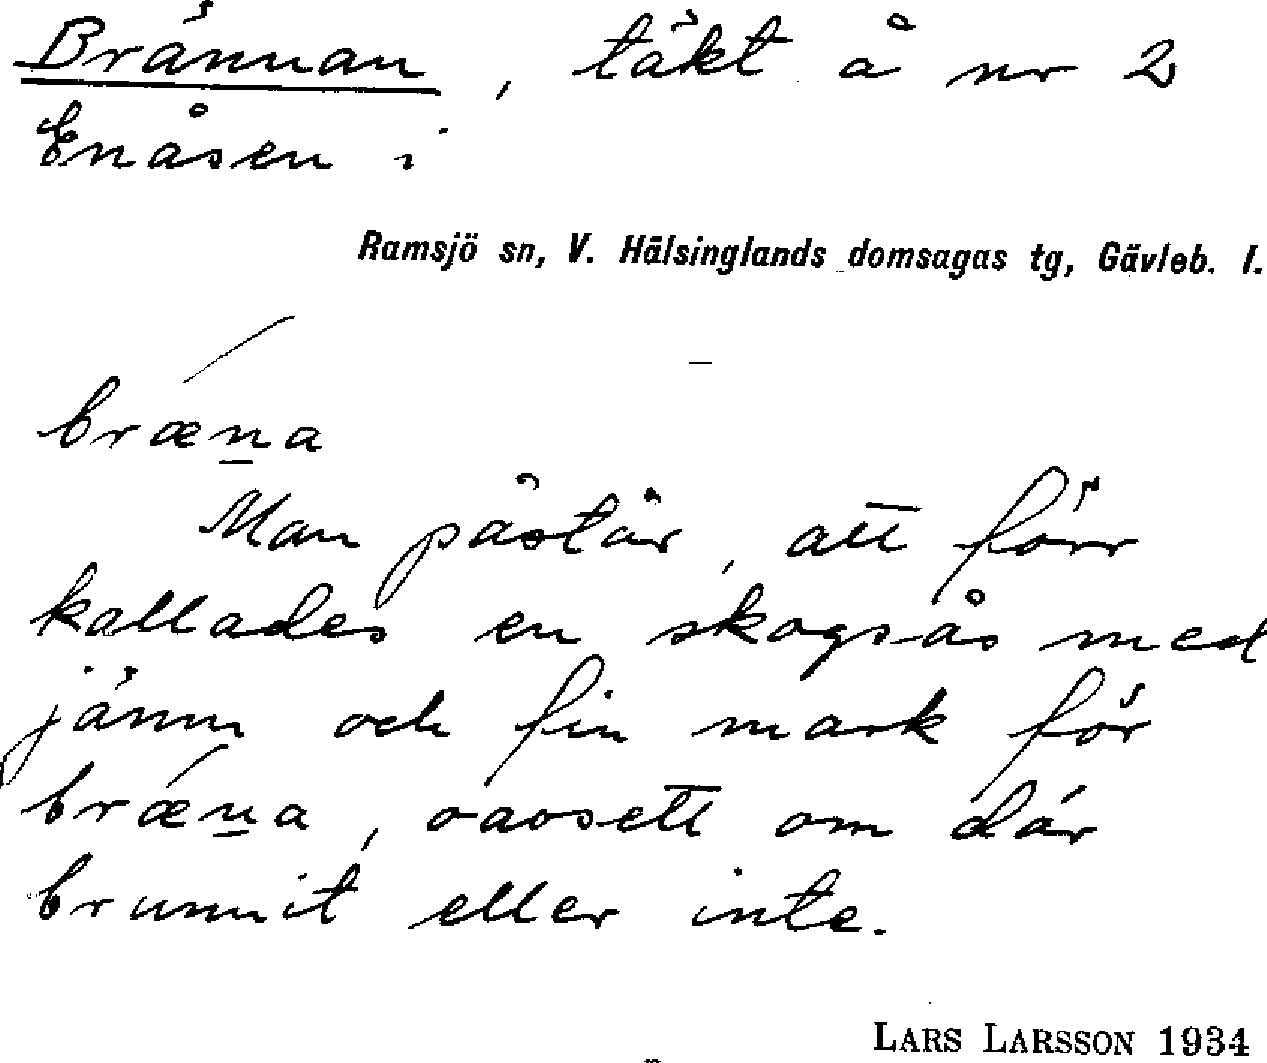 Brännan, täkt å nr 2
Enåsen i
Ramsjö sn, V. Hälsinglands domsagas tg, Gävleb. l.
bræ´n̲a
Man påstår, att förr
kallades en skogsås med
jämn och fin mark för
bræ´n̲a, oavsett om där
brunnit eller inte.
LARS LARSSON 1934